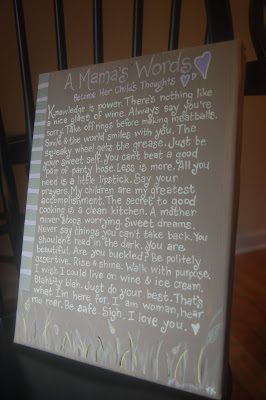 A Mama's Words
Become Her Child's Thoughts
Knowledge is power. There's nothing like
a nice glass of wine. Always say you're
sorry. Take off rings before making meatballs.
Smile & the world smiles with you. The
squeaky wheel gets the grease. Just be
your sweet self. You can't beat a good
pair of panty hose. Less is more. All you
need is a little lipstick. Say your
prayers. My children are my greatest
accomplishment. The secret to good
cooking is a clean kitchen. A mother
never stops worrying. Sweet dreams.
Never say things you can't take back. You
shouldn't read in the dark. You are
beautiful. Are you buckled? Be politely
assertive. Rise & shine. Walk with purpose.
I wish I could live on wine & ice cream.
Blahaity blah. Just do your best. That's
what I'm here for. I am woman, hear
me roar. Be safe. Sigh. I love you.